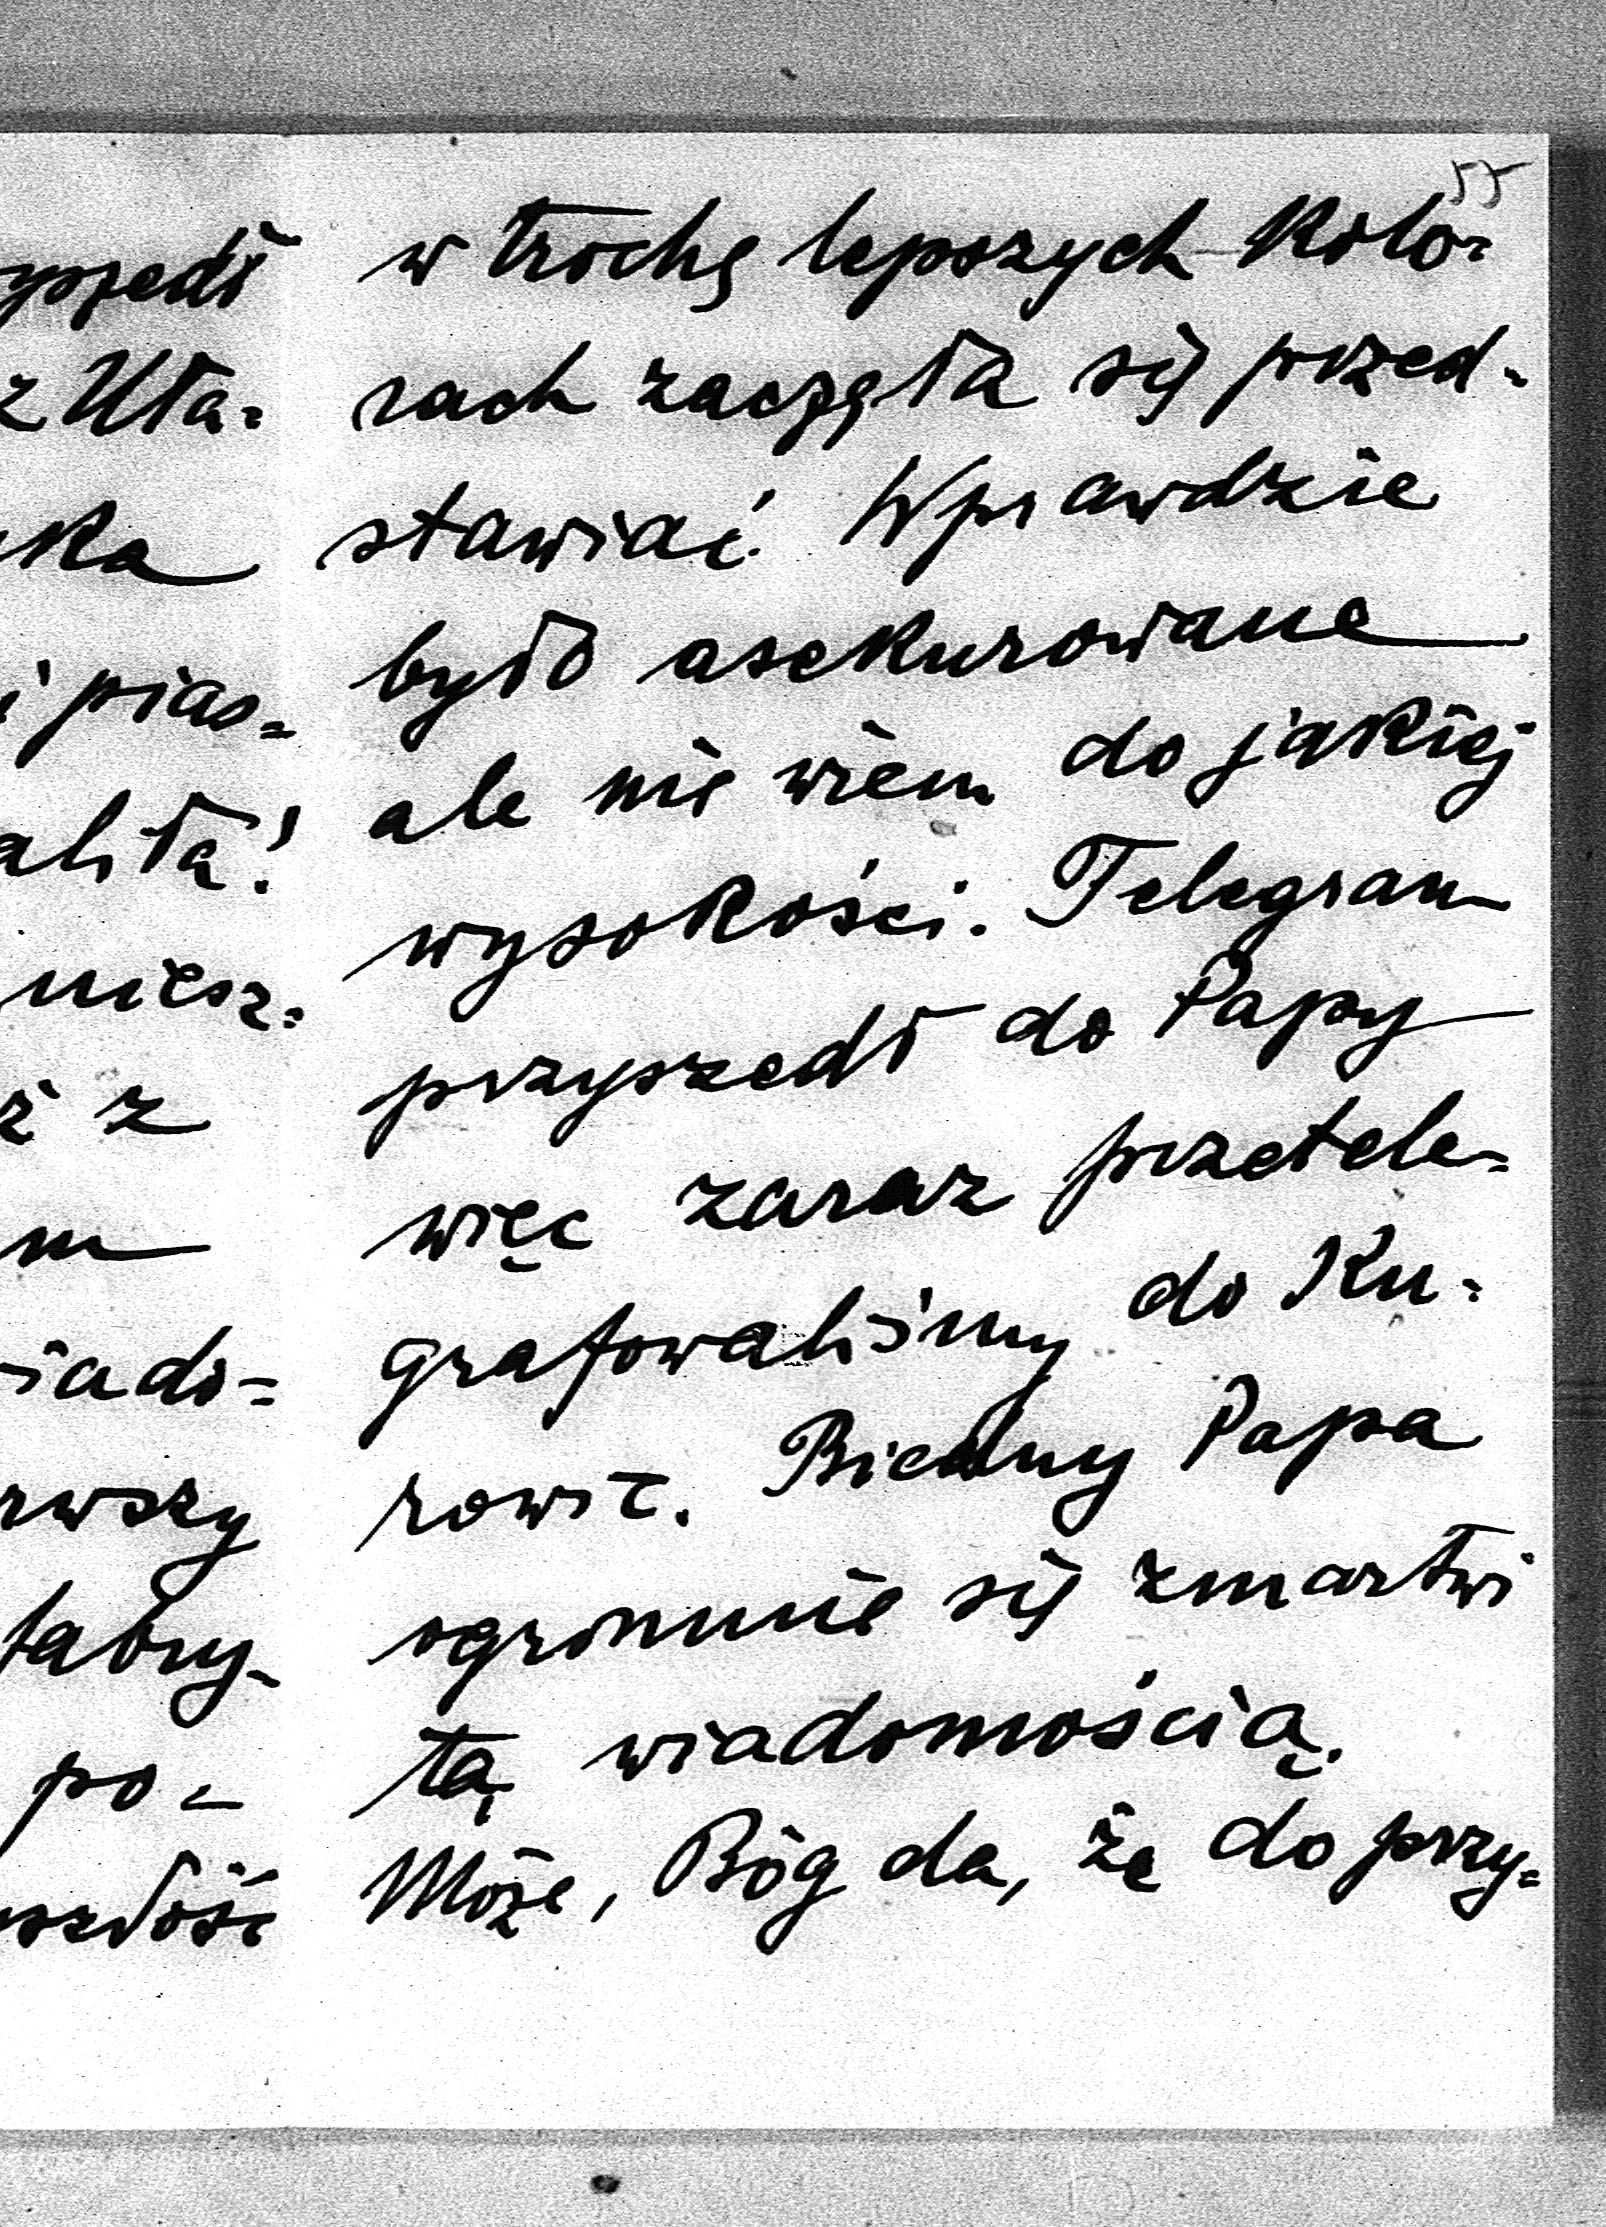 55
w trochę lepszych kolo-
rach zaczęła się przed-
stawiać. Wprawdzie
było asekurowane
ale nie wiem do jakiej
wysokości. Telegram
przyszedł do Papy
więc zaraz przetele-
grafowaliśmy do Ku-
rowic. Biedny Papa
ogromnie się zmartwi
tą wiadomością.
Może, Bóg da, że do przy-
yszedł
z Uła-
ka
i pias-
aliła!
miesz-
ż z
m
iado-
rwszy
fabry-
po-
szłość